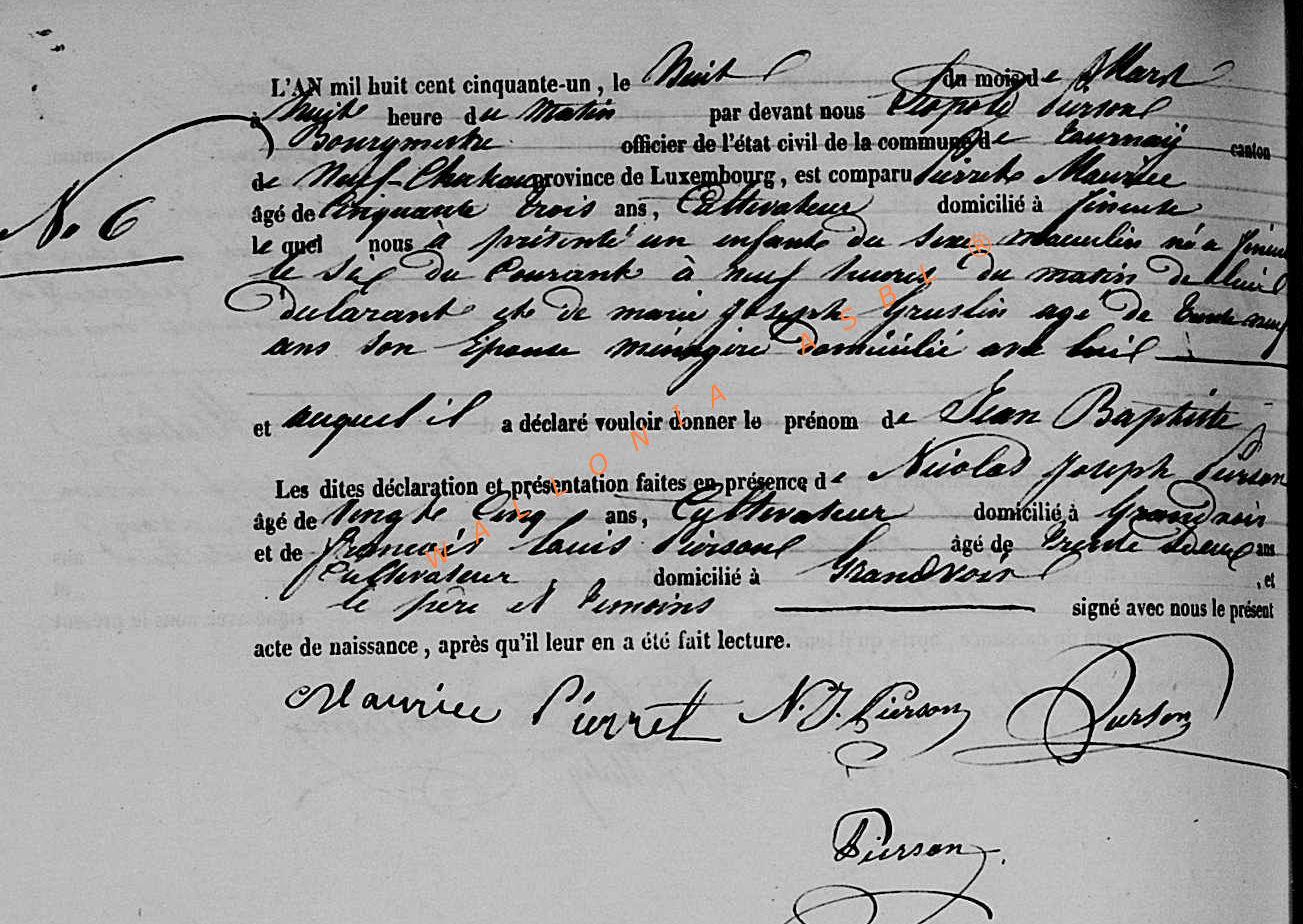 L'AN mil huit cent cinquante-un, le huit du mois de Mars
à huit heure du matin par devant nous Léopold Pierson
Bourgmestre officier de l'état civil de la commune de Tournaÿ canton
de Neuf-Chateau province de Luxembourg, est comparu Pierret Maurice
N.o 6
âgé de Cinquante trois ans, Cultivateur domicilié à
le quel nous à présenté un enfant du sexe masculin né a
le Six du Courant à neuf heures du matin de lui
déclarant et de marie Joseph Gruslin age de trente neuf
ans son Epouse ménagire domicilié avec lui
et auquel il a déclaré vouloir donner le prénom de Jean Baptiste
Les dites déclaration et présentation faites en présence de Nicolas Joseph Pierson
âgé de vingt Cinq ans, Cultivateur domicilié à Grandvoir
et de françois Louis Pierson âgé de trente deux ans
Cultivateur domicilié à Grandvoir, et
le père et temoins signé avec nous le présent
acte de naissance, après qu'il leur en a été fait lecture.
Maurice Pierret N. J. Pierson Pierson
Pierson
WALLONIA ASBL ®